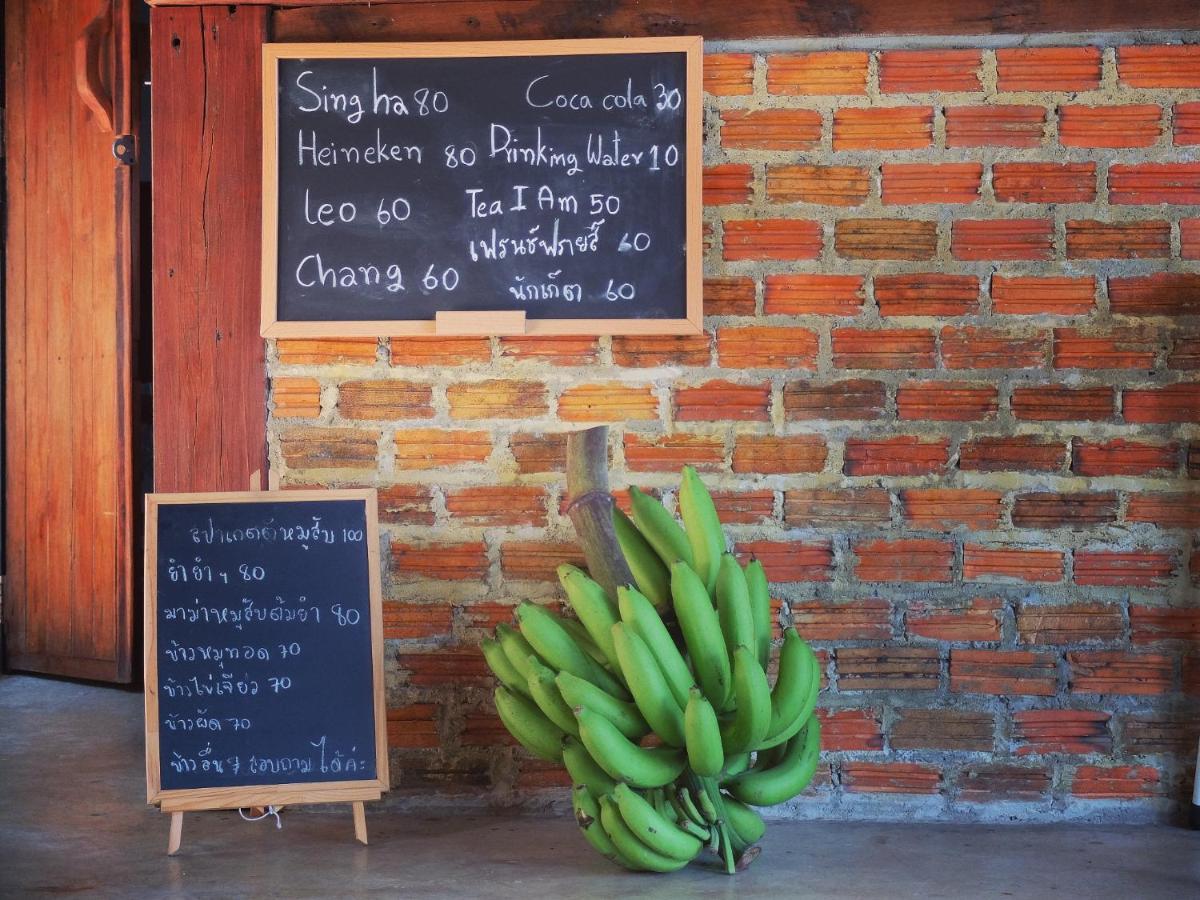 Singha 80
Heineken 80
Leo 60
Chang 60
Coca cola 30
Drinking Water 10
Tea I Am 50
เฟรนช์ฟรายส์ 60
นักเก็ต 60
หมูสับ 100
ยำยำ ๆ 80
มาม่าหมูสับต้มยำ 80
ข้าวหมูทอด 70
ข้าวไข่เจียว 70
ข้าวผัด 70
ข้าวอื่น ๆ สอบถามได้ค่ะ